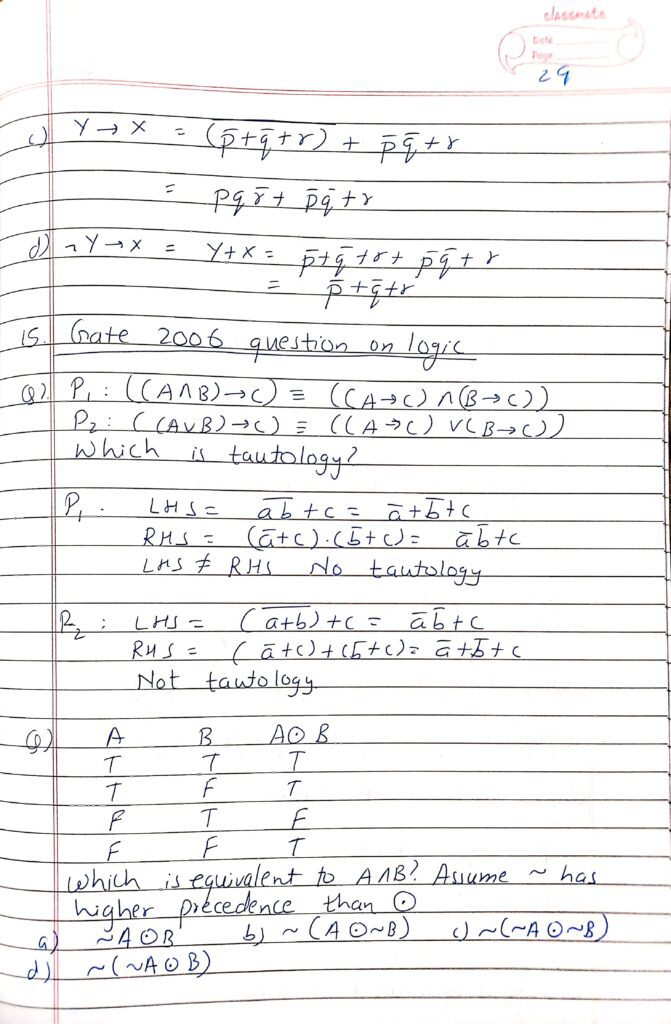 classmate
Date
Page
29
c) Y → X = (p̅+q̅+r) + p̅q̅+r
= pqr̅ + p̅q̅+r
d) ¬Y→X = Y+X = p̅+q̅+r+ p̅q̅+r
= p̅+q̅+r
15. Gate 2006 question on logic
Q) P₁ : ((A∧B)→C) ≡ ((A→C) ∧(B→C))
P₂ : ((A∨B)→C) ≡ ((A→C) ∨(B→C))
Which is tautology?
P₁ . LHS = \overline{ab}+c = a̅+b̅+c
RHS = (a̅+c).(b̅+c)= a̅b̅+c
LHS ≠ RHS No tautology
P₂ : LHS = (\overline{a+b})+c = a̅b̅+c
RHS = (a̅+c)+(b̅+c)= a̅+b̅+c
Not tautology.
Q) A B A⊙B
T T T
T F T
F T F
F F T
Which is equivalent to A∧B? Assume ~ has
higher precedence than ⊙
a) ~A⊙B b) ~(A⊙~B) c) ~(~A⊙~B)
d) ~(~A⊙B)